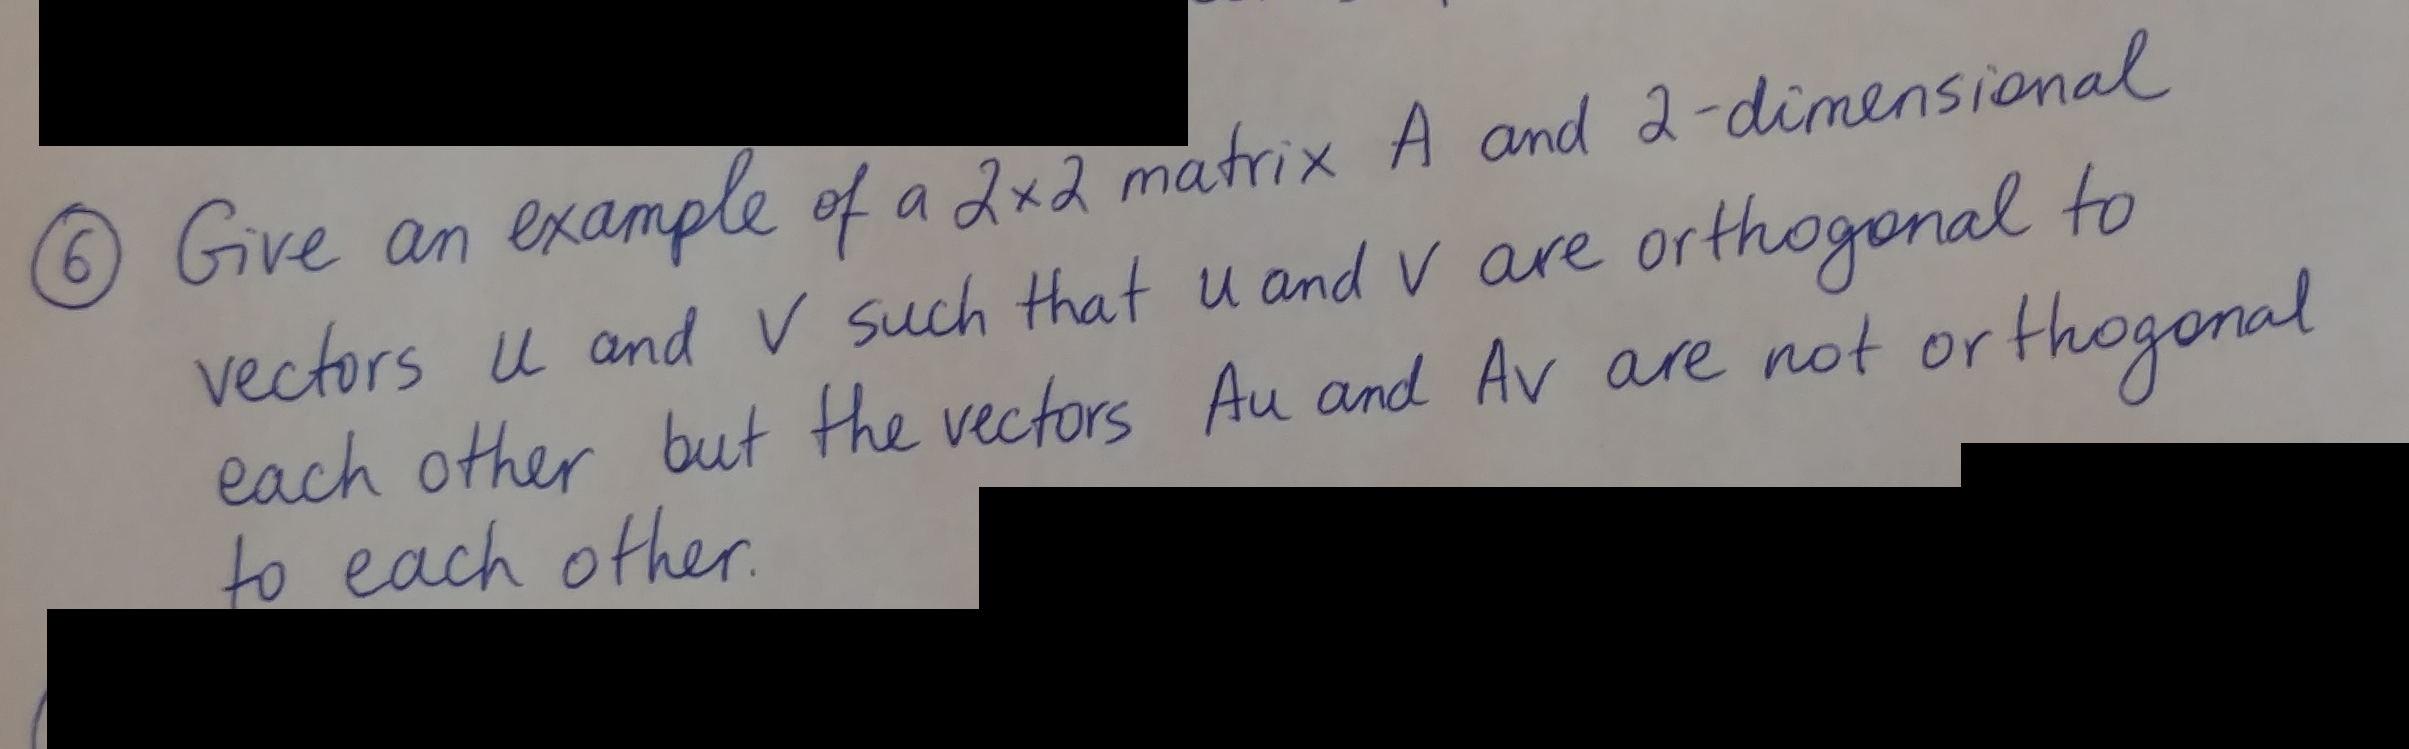 ⑥ Give an example of a 2×2 matrix A and 2-dimensional
vectors u and v such that u and v are orthogonal to
each other but the vectors Au and Av are not orthogonal
to each other.